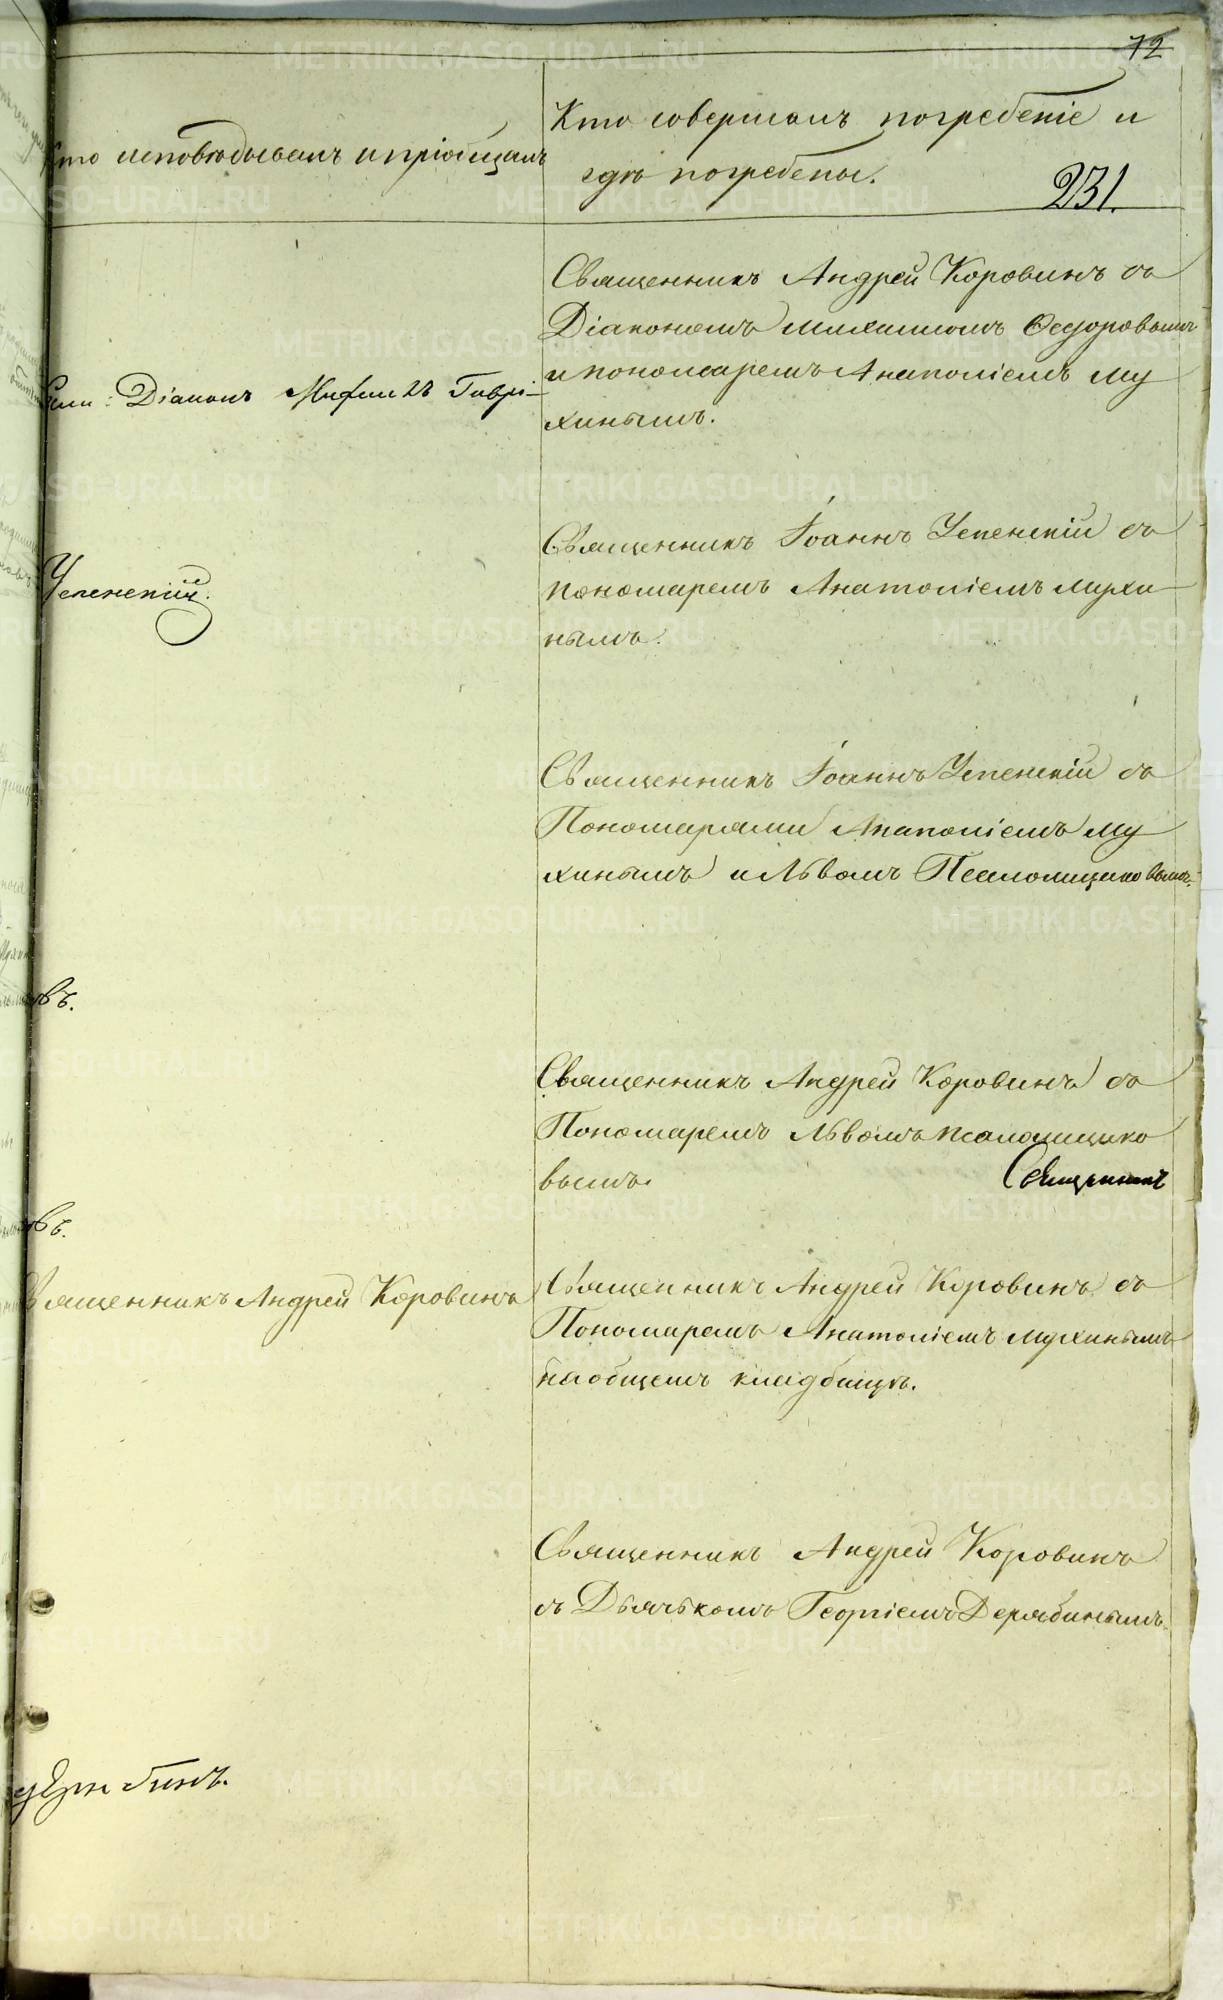 72
Кто исповѣдывалъ и пріобщалъ
Кто совершалъ погребеніе и
гдѣ погребены.
231.
Священникъ Андрей Коровинъ съ
Діакономъ Михаиломъ Ѳедоровымъ
и пономаремъ Анатоліемъ Му
хинымъ.
Діаконъ Гаврі-
Священникъ Іоаннъ Успенскій съ
пономаремъ Анатоліемъ Мухи
нымъ.
Успенскій.
Священникъ Іоаннъ Успенскій съ
Пономарями Анатоліемъ Му
хинымъ и Львомъ Псаломщиковымъ.
овъ.
Священникъ Андрей Коровинъ съ
Пономаремъ Львомъ Псаломщико
вымъ.
Священникъ
овъ.
Священникъ Андрей Коровинъ
Священникъ Андрей Коровинъ съ
Пономаремъ Анатоліемъ Мухинымъ
на общемъ кладбищѣ.
Священникъ Андрей Коровинъ
съ Дьячькомъ Георгіемъ Дерябинымъ.
METRIKI.GASO-URAL.RU